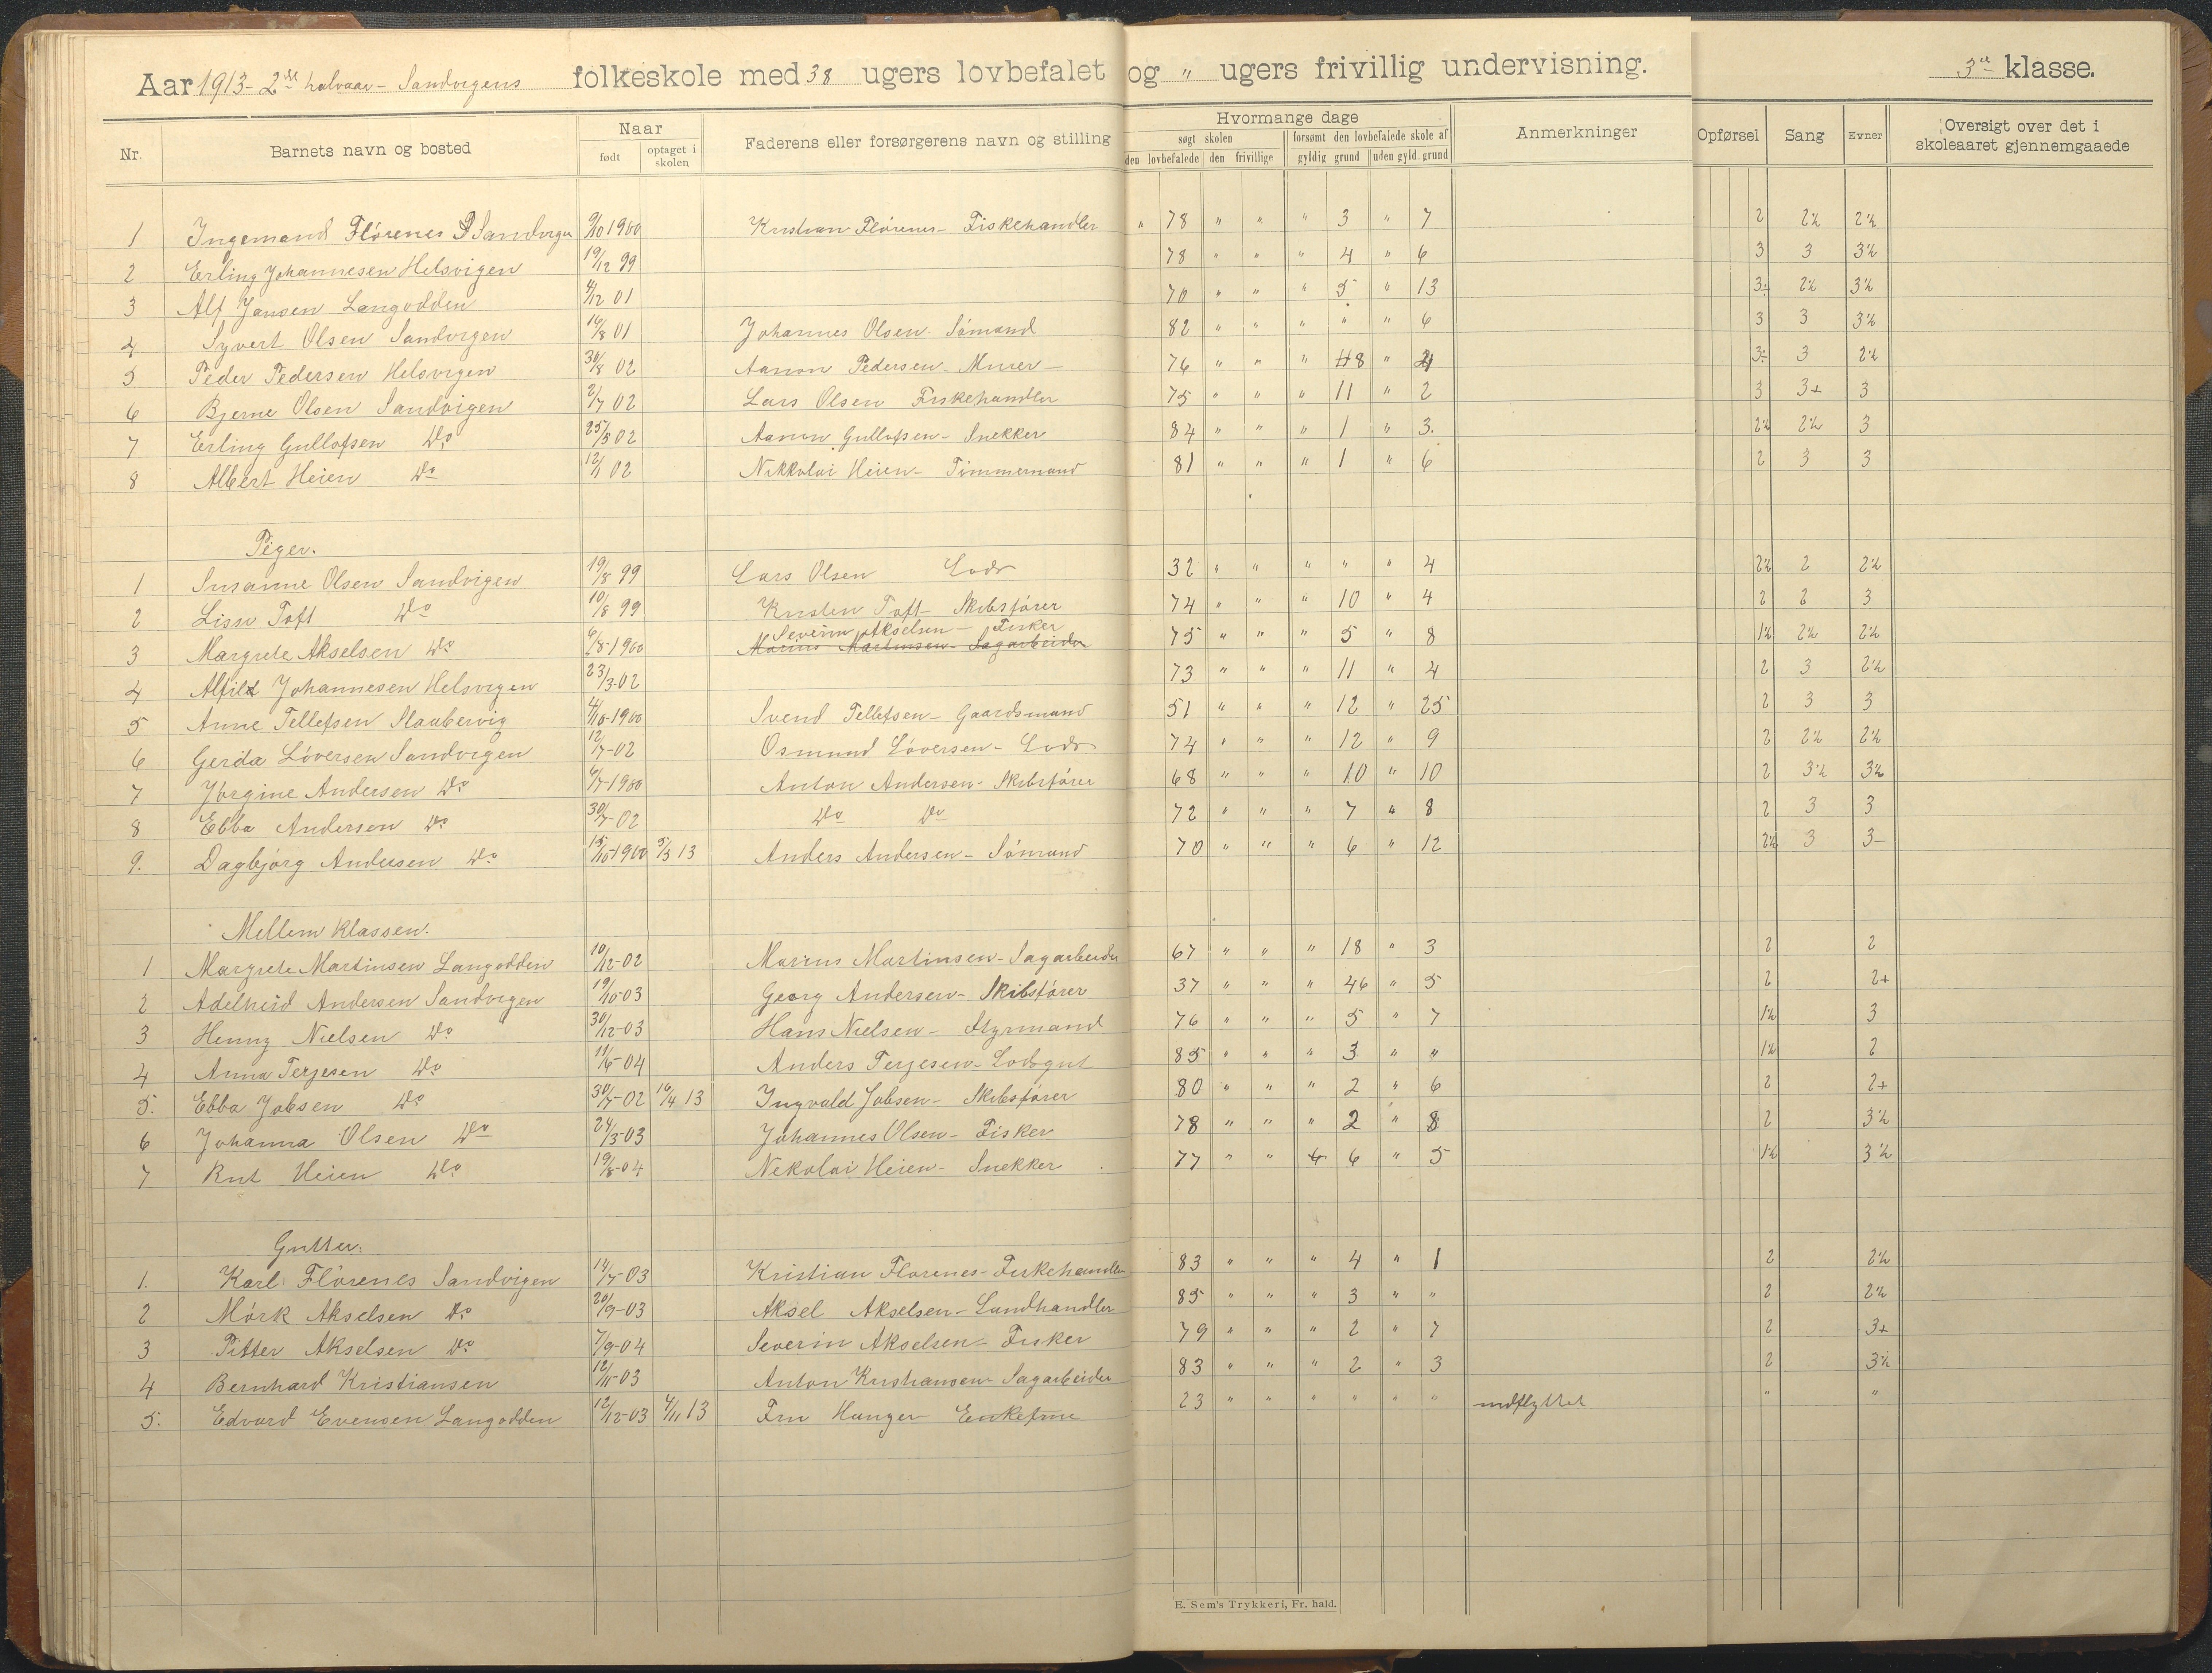 Aar 1913 - 2det halvaar - Sandvigens folkeskole med 38 ugers lovbefalet og " ugers frivillig undervisning. 3die klasse.
Nr. Barnets navn og bosted Naar født optaget i skolen Faderens eller forsørgerens navn og stilling Hvormange dage søgt skolen den lovbefalede den frivillige forsømt den lovbefalede skole af gyldig grund uden gyld. grund Anmerkninger Opførsel Sang Evner Oversigt over det i skoleaaret gjennemgaaede
1 Ingemand Flörenes Sandvigen 9/10 1900 Kristian Flörenes - Fiskehandler " 78 " " " 3 " 7 2 2½ 2½
2 Erling Johannesen Helsvigen 19/12 99 78 " " " 4 " 6 3 3 3½
3 Alf Jansen Langodden 4/12 01 70 " " " 5 " 13 3- 2½ 3½
4 Syvert Olsen Sandvigen 16/8 01 Johannes Olsen - Sömand 82 " " " " " 6 3 3 3½
5 Peder Pedersen Helsvigen 30/8 02 Aanon Pedersen - Murer - 76 " " " 8 " 4 3- 3 2½
6 Bjerne Olsen Sandvigen 2/7 02 Lars Olsen Fiskehandler 75 " " " 11 " 2 3 3+ 3
7 Erling Gullofsen Do 25/5 02 Aanon Gullofsen - Snekker 84 " " " 1 " 3. 2½ 2½ 3
8 Albert Heien Do 12/1 02 Nikkolai Heien - Timmermand 81 " " " 1 " 6 2 3 3
Piger.
1 Susanne Olsen Sandvigen 19/8 99 Lars Olsen Lods 32 " " " " " 4 2½ 2 2½
2 Lissi Toft Do 10/8 99 Kristen Toft - Skibsförer 74 " " " 10 " 4 2 2 3
Severin Akselsen - Fisker
3 Margrete Akselsen Do 6/8-1900 Marius Martinsen - Sagarbeider 75 " " " 5 " 8 1½ 2½ 2½
4 Alfild Johannesen Helsvigen 23/3-02 73 " " " 11 " 4 2 3 2½
5 Anne Tellefsen Staubervig 4/10-1900 Svend Tellefsen - Gaardsmand 51 " " " 12 " 25 2 3 3
6 Gerda Löversen Sandvigen 12/7-02 Osmund Löversen - Lods 74 " " " 12 " 9 2 2½ 2½
7 Jörgine Andersen Do 4/7-1900 Anton Andersen - Skibsförer 68 " " " 10 " 10 2 3½ 3½
8 Ebba Andersen Do 30/7-02 Do Do 72 " " " 7 " 8 2 3 3
9. Dagbjörg Andersen Do 15/10-1900 5/3 13 Anders Andersen - Sömand 70 " " " 6 " 12 2½ 3 3-
Mellem klassen.
1 Margrete Martinsen Langodden 10/12-02 Marius Martinsen - Sagarbeider 67 " " " 18 " 3 2 2
2 Adelheid Andersen Sandvigen 19/10-03 Georg Andersen - Skibsförer 37 " " " 46 " 5 2 2+
3 Henny Nielsen Do 30/12-03 Hans Nielsen - Styrmand 76 " " " 5 " 7 1½ 3
4 Anna Terjesen Do 11/6-04 Anders Terjesen - Lodsgut 85 " " " 3 " " 1½ 2
5. Ebba Jobsen Do 30/7-02 16/4 13 Ingvald Jobsen - Skibsförer 80 " " " 2 " 6 2 2+
6 Johanna Olsen Do 24/5-03 Johannes Olsen - Fisker 78 " " " 2 " 8 2 3½
7 Rut Heien Do 19/8-04 Nekolai Heien - Snekker 77 " " 6 6 " 5 1½ 3½
Gutter.
1. Karl Flörenes Sandvigen 14/7-03 Kristian Flörenes - Fiskehandler 83 " " " 4 " 1 2 2½
2 Mörk Akselsen Do 20/9-03 Aksel Akselsen - Landhandler 85 " " " 3 " " 2 2½
3 Pitter Akselsen Do 7/9-04 Severin Akselsen - Fisker 79 " " " 2 " 7 2 3+
4 Bernhard Kristiansen 12/11-03 Anton Kristiansen - Sagarbeider 83 " " " 2 " 3 2 3½
5. Edvard Evensen Langodden 12/12-03 4/11 13 Fru Hanger Enkefrue 23 " " " " " " indflyttet " "
E. Sem's Trykkeri, Fr. hald.